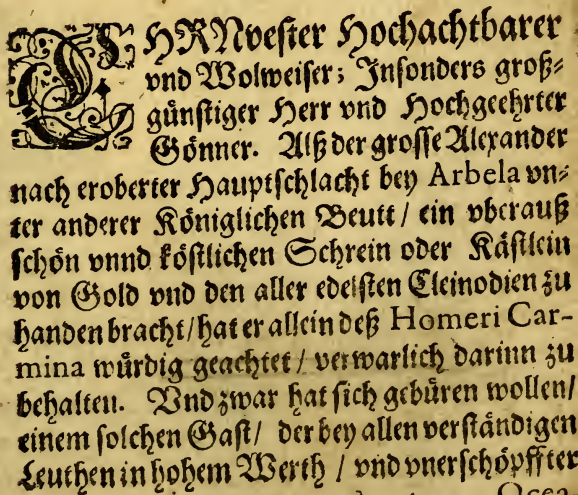 EHRNvester Hochachtbarer
vnd Wolweiser; Jnsonders groß⸗
günstiger Herr vnd Hochgeehrter
Gönner. Alß der grosse Alexander
nach eroberter Hauptschlacht bey Arbela vn⸗
ter anderer Königlichen Beutt / ein vberauß
schön vnnd köstlichen Schrein oder Kästlein
von Gold vnd den aller edelsten Cleinodien zu
handen bracht / hat er allein deß Homeri Car-
mina würdig geachtet / verwarlich darinn zu
behalten. Vnd zwar hat sich gebüren wollen /
einem solchen Gast / der bey allen verständigen
Leuthen in hohem Werth / vnd vnerschöpffter
Ocea